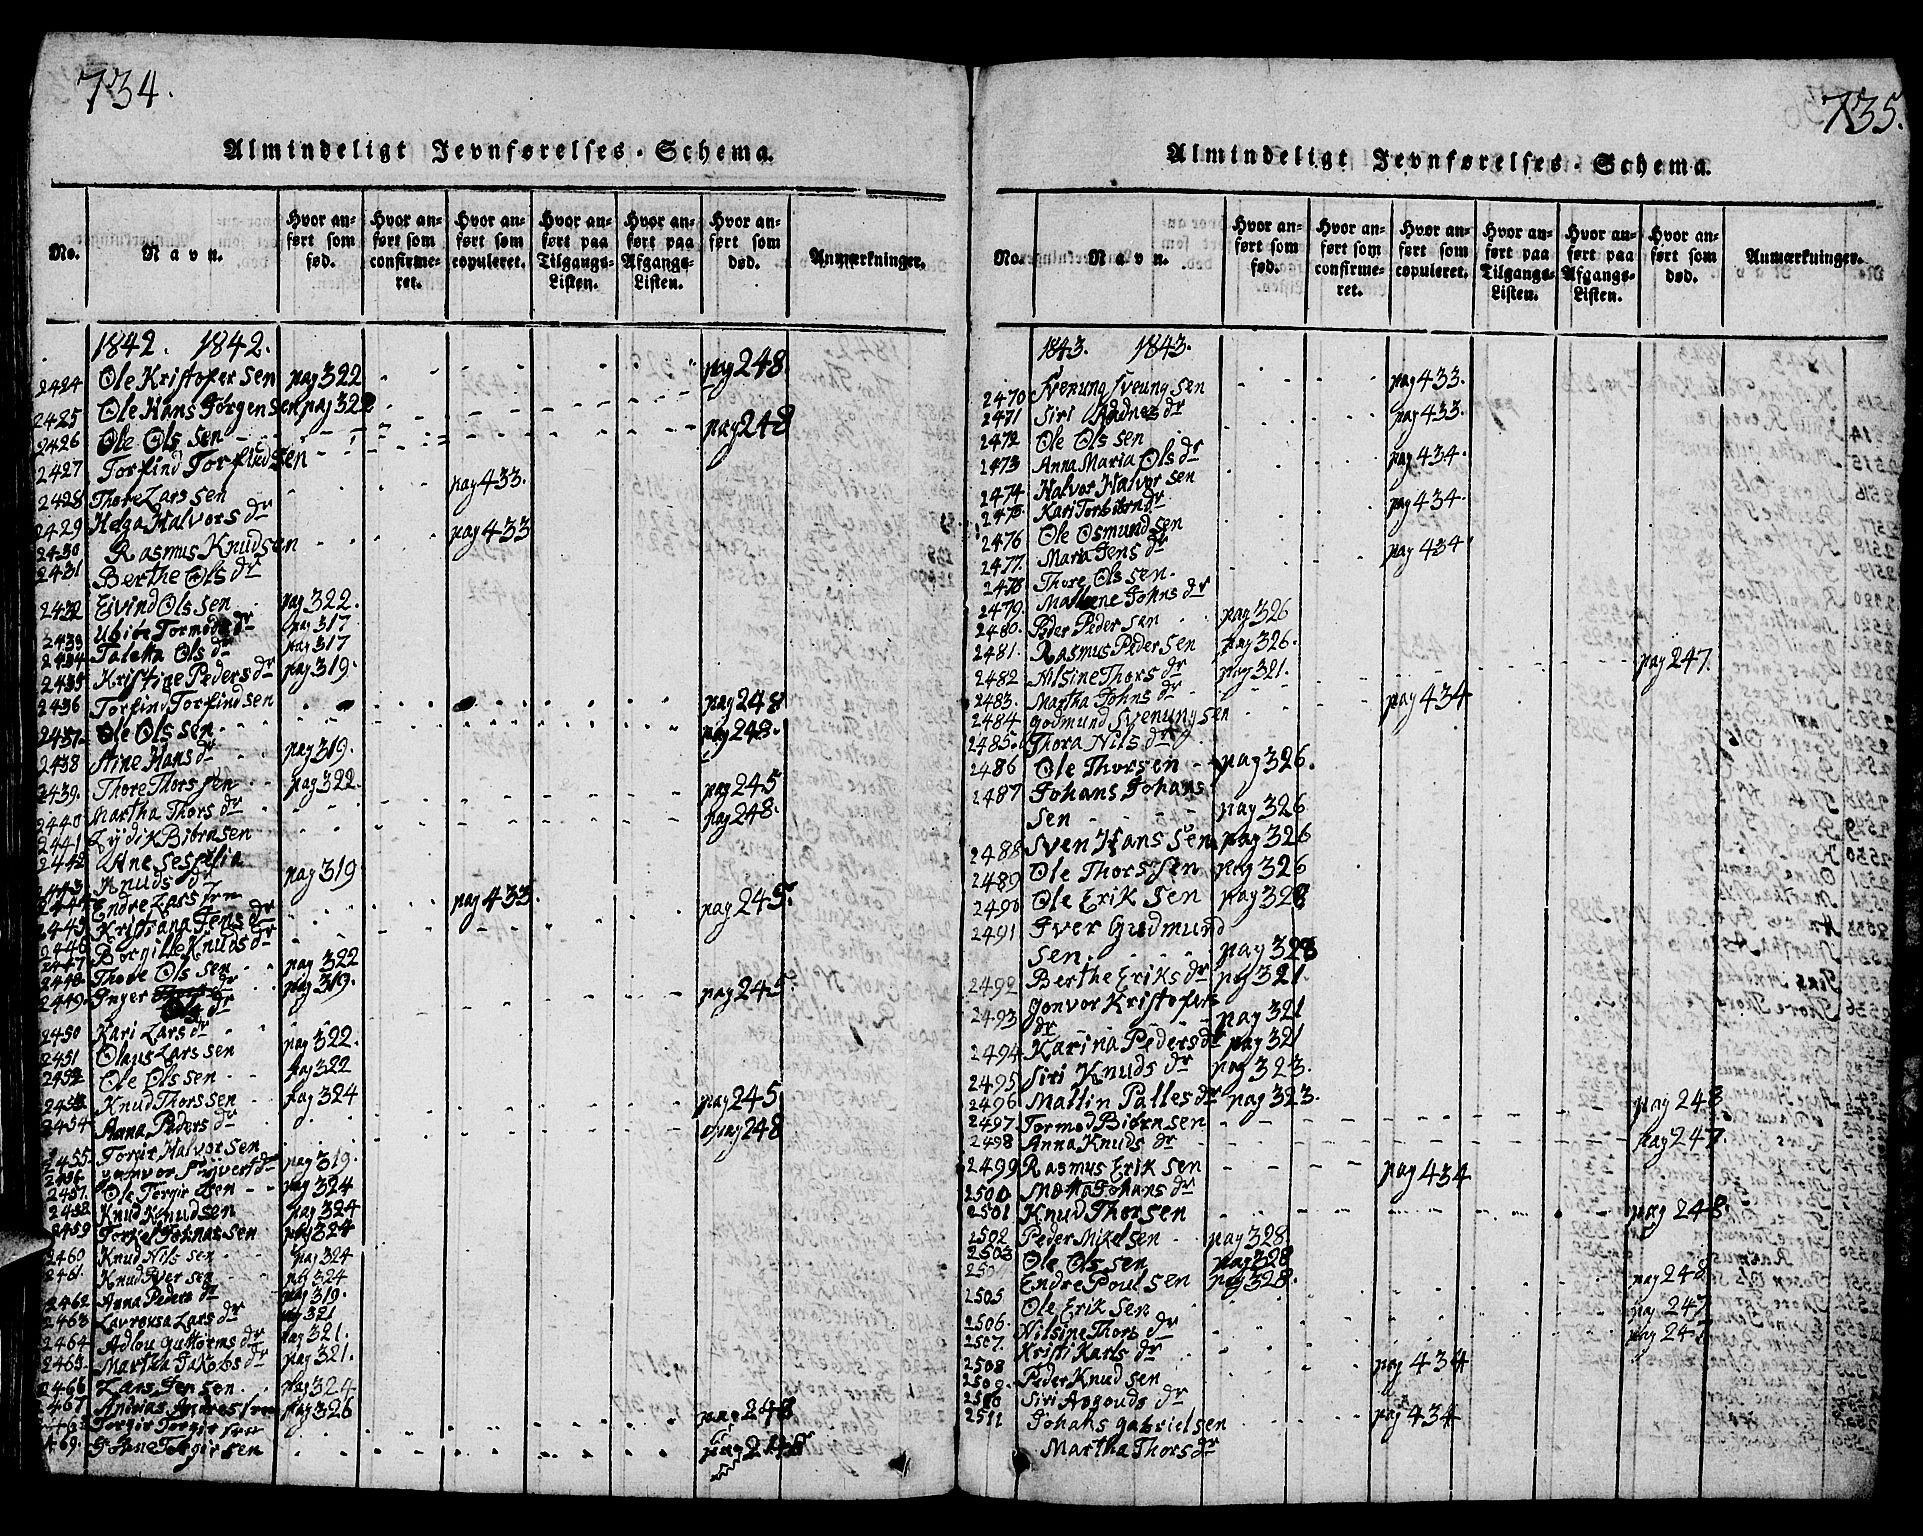 734.
Almindeligt Jevnførelses-Schema.
No.
Navn.
Hvor anført som fød.
Hvor anført som confirmeret.
Hvor anført som copuleret.
Hvor anført paa Tilgangs-Listen.
Hvor anført paa Afgangs-Listen.
Hvor anført som død.
Anmærkninger.
1842. 1842.
2424 Ole Kristofersen pag 322 pag 248
2425 Ole Hans Jørgensen pag 322
2426 Ole Olssen pag 248
2427 Torfind Torfindsen
2428 Thore Larssen pag 433.
2429 Helga Halvors dr
2430 Rasmus Knudsen pag 433
2431 Berthe Ols dr
2432 Eivind Olssen pag 322.
2433 Tormods dr pag 317
2434 Taletta Ols dr pag 317
2435 Kristine Peders dr pag 319.
2436 Torfind Torfindsen pag 248
2437 Ole Olssen pag 248.
2438 Stine Hans dr pag 319.
2439. Thore Thorssen pag 322 pag 245
2440 Martha Thors dr pag 248.
2441 Lydik Biørnsen
2442 Ane Sesselia
2443 Knuds dr pag 319
2444 Endre Larssen pag 433 pag 245
2445 Kristiana Jens dr
2446 Borgille Knuds dr
2447
2448 Thore Olssen pag 322
2449 Inger Ols dr pag 319. pag 245
2450 Kari Lars dr
2451 Olaus Larssen pag 322.
2452 Ole Olssen pag 322
2453 Knud Thorssen pag 324 pag 245
2454 Anna Peders dr pag 248
2455 Torgir Halvorsen
2456 dr pag 319.
2457. Ole Torgirssen pag 324
2458 Knud Knudsen pag 324
2459 Torkel Johnassen pag 324
2460 Knud Nilssen pag 324
2461. Knud Iversen pag 324
2462 Anna Peders dr pag 319.
2463 Lavrensa Lars dr pag 321
2464 Adlou Guttorms dr pag 321.
2465 Martha Jakobs dr pag 321.
2466 Lars Jensen pag 324
2467 Andreas Andressen pag 326
Torgir Torgirsen pag 248
2469. Torgirsen pag 246
735.
Almindeligt Jevnførelses-Schema.
No.
Navn.
Hvor anført som fød.
Hvor anført som confirmeret.
Hvor anført som copuleret.
Hvor anført paa Tilgangs-Listen.
Hvor anført paa Afgangs-Listen.
Hvor anført som død.
Anmærkninger.
1843. 1843.
2470 Svenung Sveungsen pag 433.
2471 Siri dr pag 433.
2472 Ole Olssen
2473 Anna Maria Ols dr pag 434.
2474 Halvor Halvorsen
2475 Kari Torbiørn dr pag 434.
2476 Ole Osmundsen
2477. Maria Jens dr pag 434
2478 Thore Olssen.
2479. Mallene Johns dr
2480. Peder Pedersen pag 326
2481. Rasmus Pedersen pag 326.
2482 Nilsine Thors dr pag 321. pag 247.
2483. Martha Johns dr
2484 Godmund Svenungsen pag 434
2485. Thora Nils dr
2486 Ole Thorsen pag 326.
2487 Johans Johans
sen pag 326
2488 Sven Hanssen pag 326
2489 Ole Thorssen pag 326
2490 Ole Eriksen pag 328
2491 Iver Gudmund
sen. pag 328
2492 Berthe Eriks dr pag 321.
2493 Gonvor Kristofers
dr pag 321
2494 Karina Peders dr pag 321
2495 Siri Knuds dr pag 323.
2496 Mallin Palles dr pag 323.
2497 Tormod Biørnsen pag 248
2498 Anna Knuds dr pag 247.
2499 Rasmus Eriksen pag 434
2500 Metta Johans dr
2501 Knud Thorsen pag 248.
2502 Peder Mikelsen pag 328
2503 Ole Olssen pag 328
250 Endre Poulsen pag 328.
2505 Ole Eriksen pag 248
2506. Nilsine Thors dr pag 247
2507. Kristi Karls dr pag 247
2508 Peder Knudsen pag 434
2509. Siri Asgouds dr
2510
2511 Johans Gabrielsen pag 434
Martha Thors dr